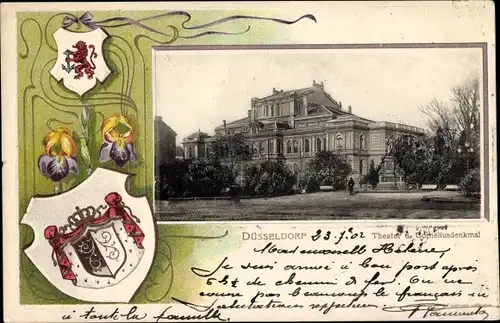 DÜSSELDORF 23.7.02 Theater u. Corneliusdenkmal
Mademoiselle Hélène,
Je suis arrivé à bon port après
6½ de chemin de fer. On ne
cause pas beaucoup le français ici
salutations respectueuses
à toute la famille